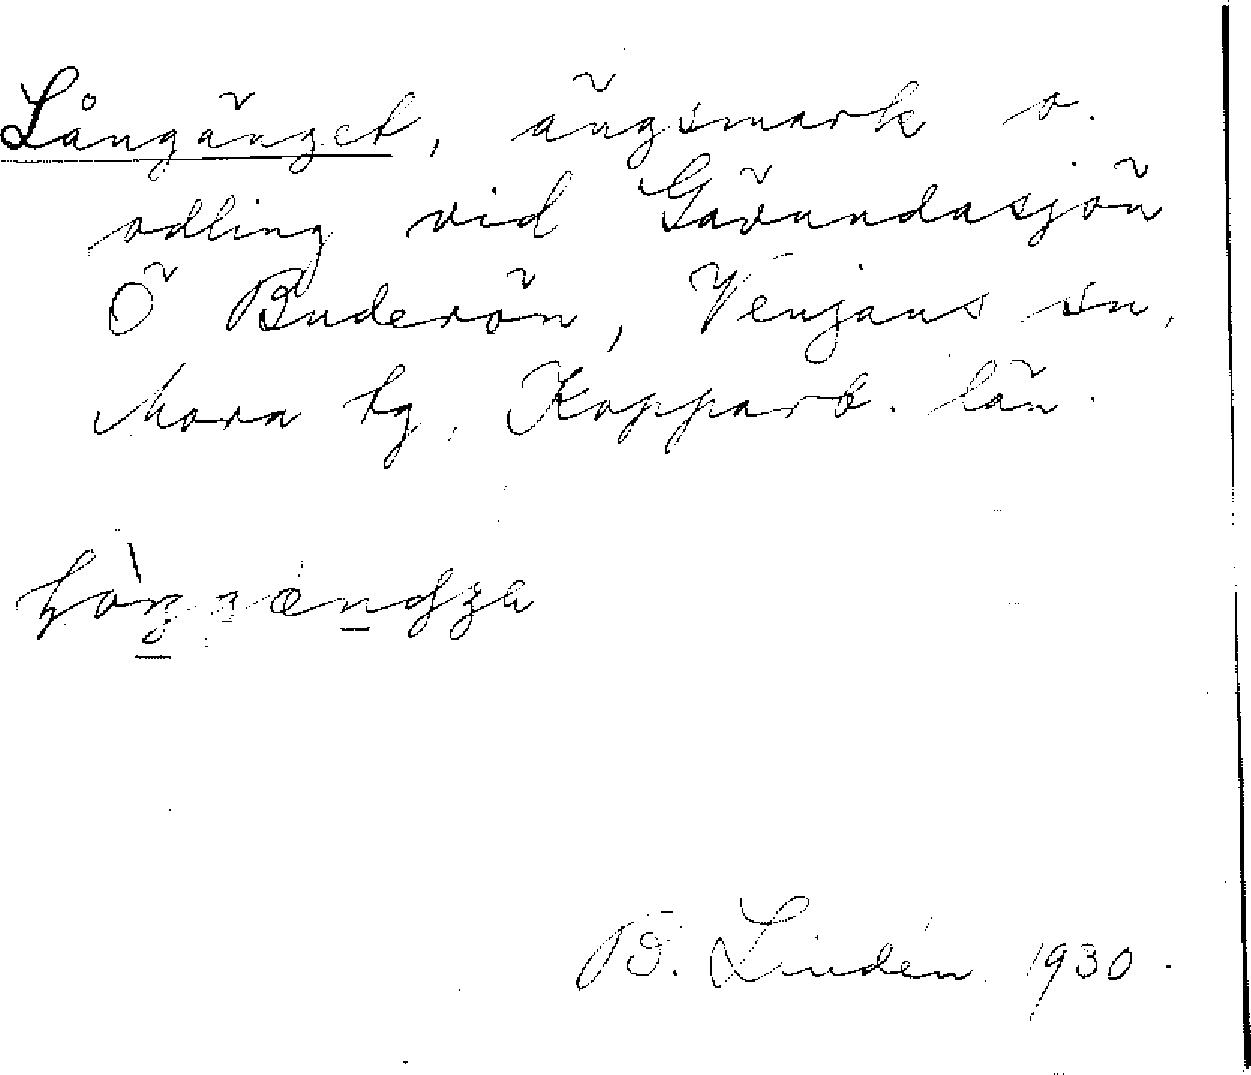 Långänget, ängsmark o.
odling vid Gävundasjön
Ö Buderön, Venjans sn,
Mora tg, Kopparb. län.
B. Lindén 1930.